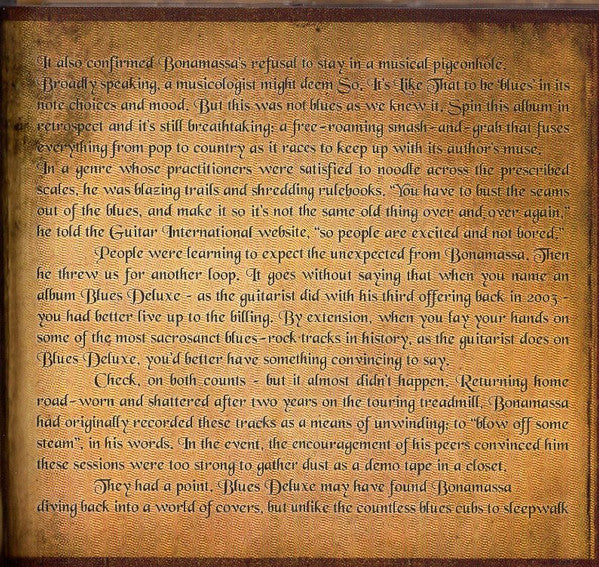 It also confirmed Bonamassa's refusal to stay in a musical pigeonhole.
Broadly speaking, a musicologist might deem So, It's Like That to be 'blues' in its
note choices and mood. But this was not blues as we knew it. Spin this album in
retrospect and it's still breathtaking: a free-roaming smash-and-grab that fuses
everything from pop to country as it races to keep up with its author's muse.
In a genre whose practitioners were satisfied to noodle across the prescribed
scales, he was blazing trails and shredding rulebooks. "You have to bust the seams
out of the blues, and make it so it's not the same old thing over and over again,"
he told the Guitar International website, "so people are excited and not bored."
People were learning to expect the unexpected from Bonamassa. Then
he threw us for another loop. It goes without saying that when you name an
album Blues Deluxe - as the guitarist did with his third offering back in 2003 -
you had better live up to the billing. By extension, when you lay your hands on
some of the most sacrosanct blues-rock tracks in history, as the guitarist does on
Blues Deluxe, you'd better have something convincing to say.
Check, on both counts - but it almost didn't happen. Returning home
road-worn and shattered after two years on the touring treadmill, Bonamassa
had originally recorded these tracks as a means of unwinding; to "blow off some
steam", in his words. In the event, the encouragement of his peers convinced him
these sessions were too strong to gather dust as a demo tape in a closet.
They had a point. Blues Deluxe may have found Bonamassa
diving back into a world of covers, but unlike the countless blues cubs to sleepwalk